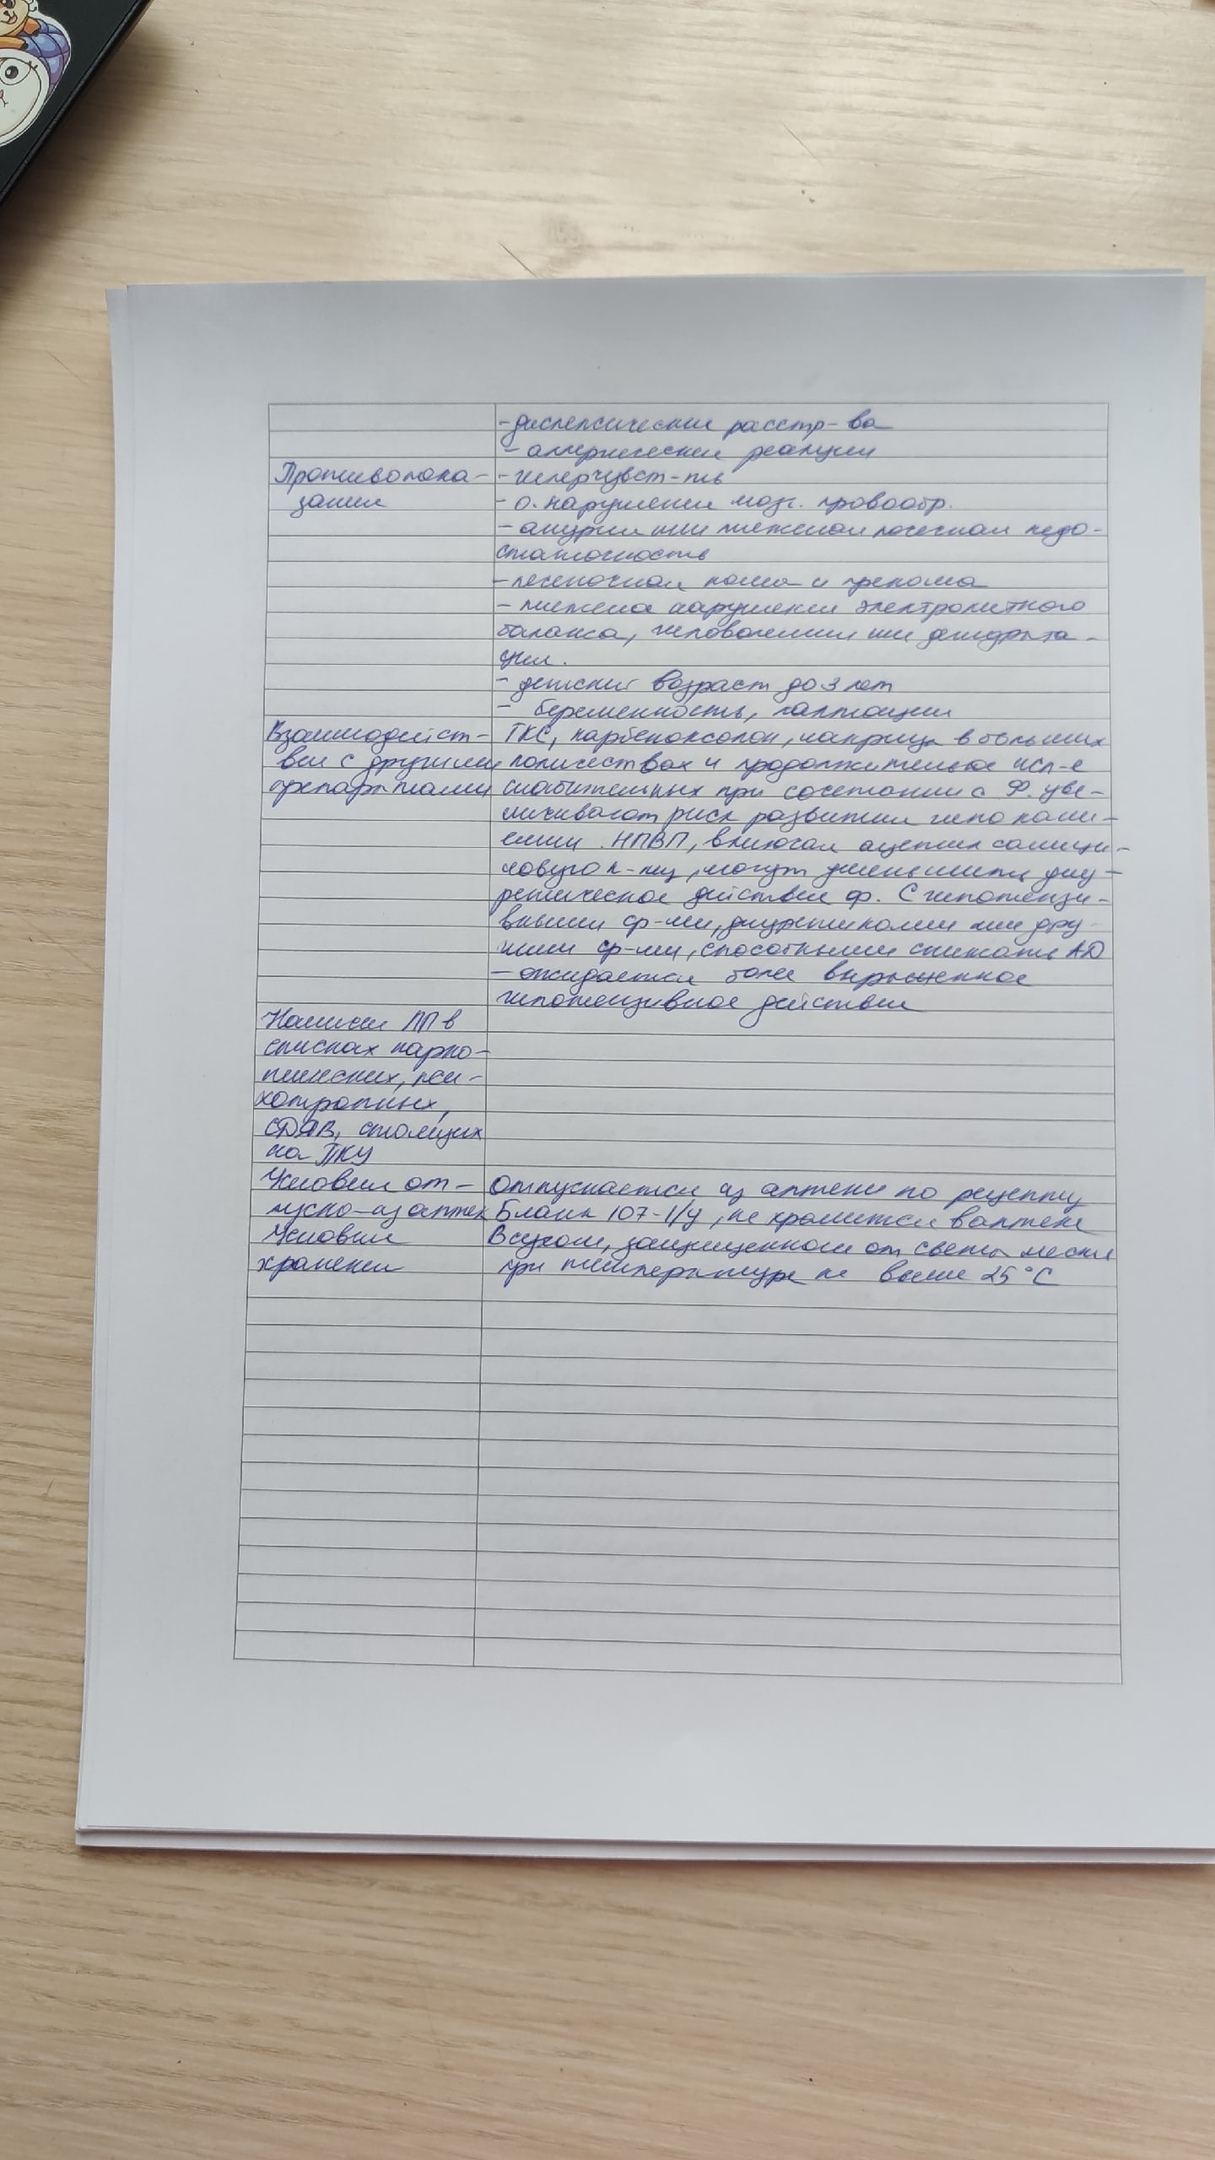 - диспепсические расстр-ва
- аллергические реакции
Противопока- - гиперчувст-ть
зания - о. нарушения мозг. кровообр.
- анурия или тяжелая почечная недо-
статочность
- печеночная кома и прекома
- тяжелые нарушения электролитного
баланса, гиповолемия или дегидрата-
ция.
- детский возраст до 3 лет
- беременность, лактация
Взаимодейст- ГКС, карбеноксолон, лакрица в больших
вие с другими количествах и продолжительное исп-е
препаратами слабительных при сочетании с Ф. уве-
личивают риск развития гипокали-
емии. НПВП, включая ацетил салици-
ловую к-ту, могут уменьшить диу-
ретическое действие ф. С гипотензи-
вными ср-ми, диуретиками или дру-
гими ср-ми, способными снижать АД
- ожидается более выраженное
гипотензивное действие
Наличие ЛП в
списках нарко-
тических, пси-
хотропных,
СДЯВ, стоящих
на ПКУ
Условия от- Отпускается из аптеки по рецепту
пуска из аптек Бланк 107-1/у, не хранится в аптеке
Условия В сухом, защищенном от света месте
хранения при температуре не выше 25°C